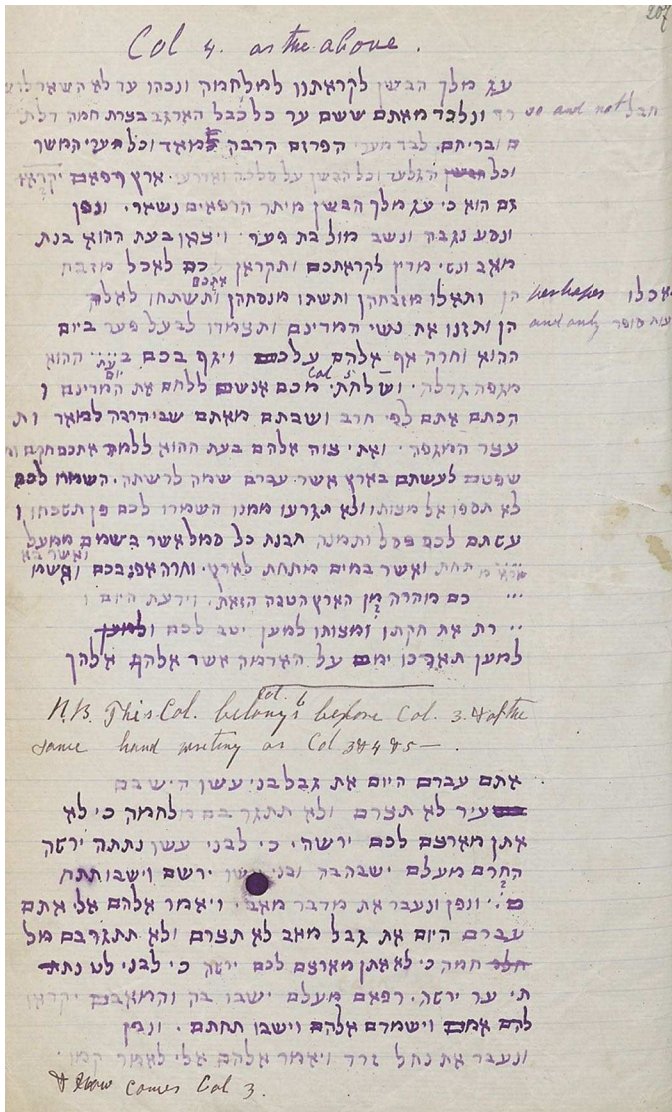 207
Col 4. as the above.
עג מלך הבשן לקראתנו למלחמה ונכהו עד לא השאר לו
רד ונלכד מאתם ששם ער כל חבל הארגב בצרת חמה דלת so and not חבל
ם ובריחם. לבד מערי הפרזם הרבה למאד וכל ערי המשר
וכל הגלעד וכל הבשן על סלכה ואדרעי ארץ רפאם יקראו
גם הוא כי עג מלך הבשן מיתר הרפאים נשאר. ונפן
ונסע נגבה ונשב מול בת פער. ויצאן בעת ההוא בנת
מאב ונשי מדין לקראתכם ותקראן לכם לאכל מזבח
אתכם
הן ותאכלו מזבחהן ותשתו מנסכהן ותשתחו לאלה perhaps
הן ותזנו את נשי המדינם ותצמדו לבעל פער ביום and only סופר
ההוא וחרה אף אלהם עלכם ויגף בכם בעת ההוא
Col 5
יום
מגפה גדלה. ושלחתי מכם אנשם ללחם את המדינם ו
הכתם אתם לפי חרב ושבתם מאתם שבי הרבה למאד ות
עצר המגפה. ואתי צוה אלהם בעת ההוא ללמד אתכם חקם
שפטם לעשתם בארץ אשר עברם שמה לרשתה. השמרו לכם
לא תספו אל מצותו ולא תגרעו ממנו השמרו לכם פן תשכחו ו
עשתם לכם פסל ותמנה תבנת כל סמל אשר בשמים ממעל
ואשר בא
מתחת ואשר במים מתחת לארץ. וחרה אפו בכם והשמ
כם מהרה מן הארץ הטבה הזאת. וידעת היום ו
רת את חקתו ומצותו למען יטב לכם ולמען
למען תארכו ימם על האדמה אשר אלהם אלהך
Col. 6
N.B. This Col. belongs before Col. 3. & of the
same hand writing as Col 3 & 4 & 5 — .
אתם עברם היום את גבל בני עשו הישבם
עיר לא תצרם ולא תתגר בם מלחמה כי לא
אתן מארצם לכם ירשה. כי לבני עשו נתתה ירשה
החרם מעלם ישבה בה ובני עשו ירשם וישבו תחת
ם. ונפן ונעבר את מדבר מאב. ויאמר אלהם אלי אתם
עברם היום את גבל מאב לא תצרם ולא תתגרבם מל
חמה כי לא אתן מארצם לכם ירשה כי לבני לט נתת
תי ער ירשה. רפאם מעלם ישבו בה והמאבם יקראו
להם אמם וישמדם אלהם וישבו תחתם. ונפן
ונעבר את נחל זרד ויאמר אלהם אלי לאמר קמו
& now comes Col 3.